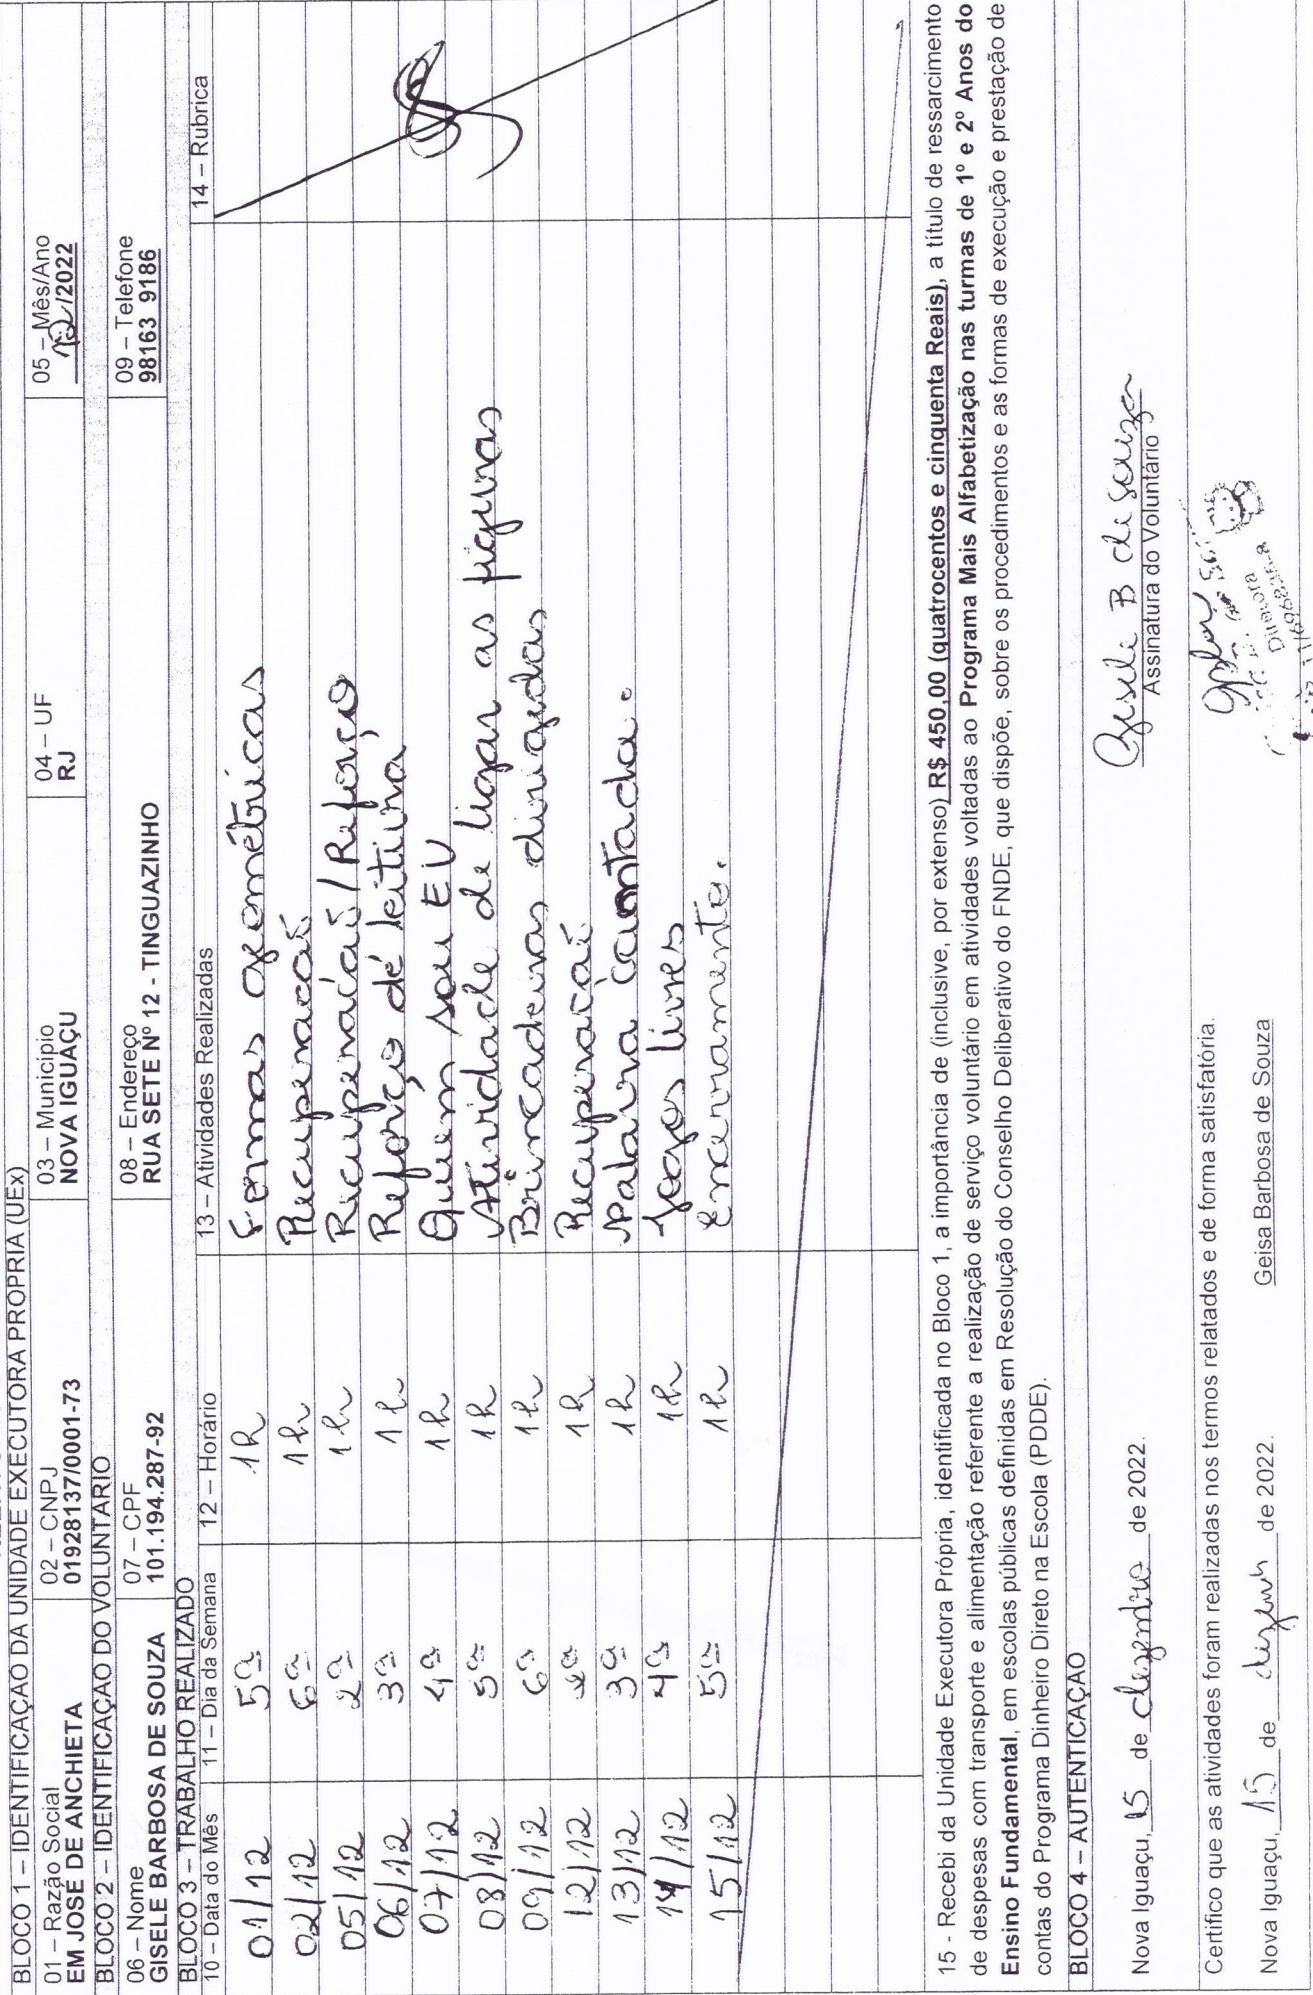 BLOCO 1 – IDENTIFICAÇÃO DA UNIDADE EXECUTORA PRÓPRIA (UEx)
01 – Razão Social 02 – CNPJ 03 – Município 04 – UF 05 – Mês/Ano
EM JOSÉ DE ANCHIETA 01928137/0001-73 NOVA IGUAÇU RJ 12/2022
BLOCO 2 – IDENTIFICAÇÃO DO VOLUNTÁRIO
06 – Nome 07 – CPF 08 – Endereço 09 – Telefone
GISELE BARBOSA DE SOUZA 101.194.287-92 RUA SETE Nº 12 - TINGUAZINHO 98163 9186
BLOCO 3 – TRABALHO REALIZADO
10 – Data do Mês 11 – Dia da Semana 12 – Horário 13 – Atividades Realizadas 14 – Rubrica
01/12 5ª 1h Formas geométricas
02/12 6ª 1h Recuperação
05/12 2ª 1h Recuperação/Reforço
06/12 3ª 1h Reforço de leitura
07/12 4ª 1h Quem sou EU
08/12 5ª 1h Atividade de ligar as figuras
09/12 6ª 1h Brincadeiras dirigidas
12/12 2ª 1h Recuperação
13/12 3ª 1h Palavra cantada.
14/12 4ª 1h Jogos livres
15/12 5ª 1h Encerramento.
15 - Recebi da Unidade Executora Própria, identificada no Bloco 1, a importância de (inclusive, por extenso) R$ 450,00 (quatrocentos e cinquenta Reais), a título de ressarcimento
de despesas com transporte e alimentação referente a realização de serviço voluntário em atividades voltadas ao Programa Mais Alfabetização nas turmas de 1º e 2º Anos do
Ensino Fundamental, em escolas públicas definidas em Resolução do Conselho Deliberativo do FNDE, que dispõe, sobre os procedimentos e as formas de execução e prestação de
contas do Programa Dinheiro Direto na Escola (PDDE).
BLOCO 4 – AUTENTICAÇÃO
Nova Iguaçu, 15 de dezembro de 2022. Gisele B de Souza
Assinatura do Voluntário
Certifico que as atividades foram realizadas nos termos relatados e de forma satisfatória.
Nova Iguaçu, 15 de dezemb de 2022. Geisa Barbosa de Souza
Diretora